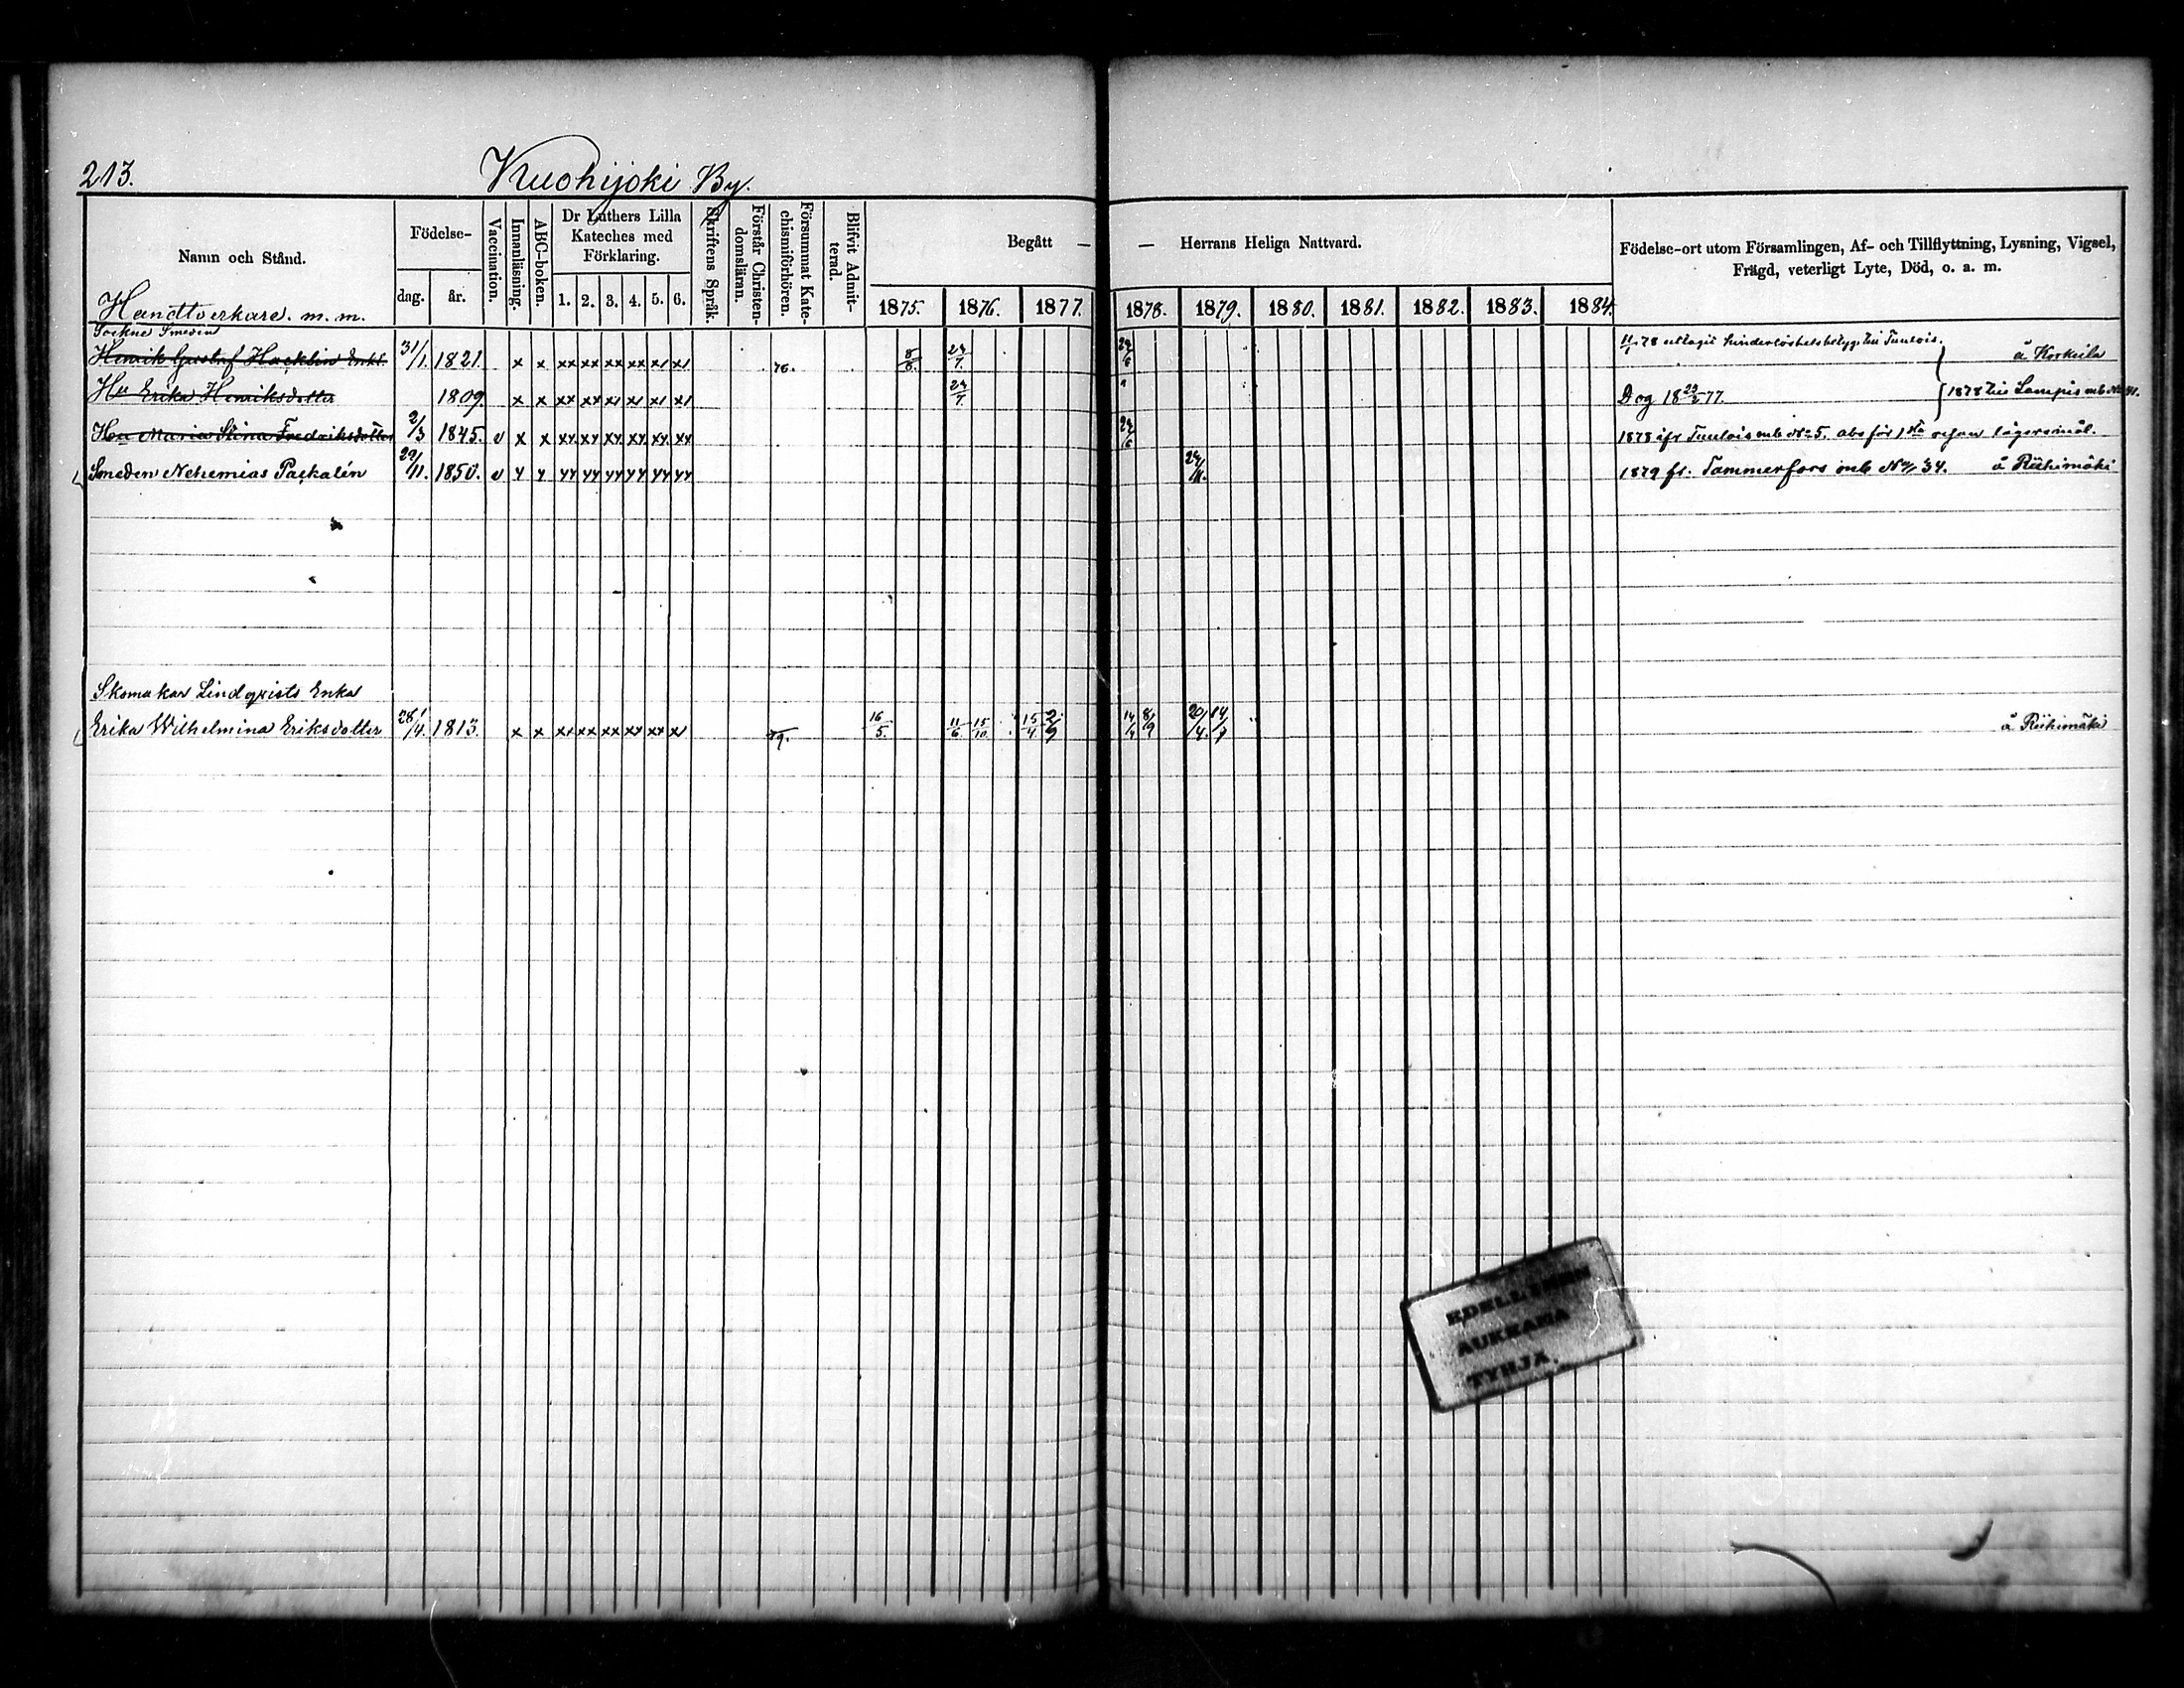 213.
Kuohijoki By.
Namn och Stånd.
Handtverkare. m. m.
Födelse-
dag.
år.
Vaccination.
Innanläsning.
ABC-boken.
Dr Luthers Lilla
Kateches med
Förklaring.
1. 2. 3. 4. 5. 6.
Skriftens Språk.
Förstår Christen-
domsläran.
Försummat Kate-
chismiförhören.
Blifvit Admit-
terad.
Begått — — Herrans Heliga Nattvard.
1875. 1876. 1877. 1878. 1879. 1880. 1881. 1882. 1883. 1884.
Födelse-ort utom Församlingen, Af- och Tillflyttning, Lysning, Vigsel,
Frägd, veterligt Lyte, Död, o. a. m.
Sockne Smeden
Henrik Gustaf Hacklin Enkl. 31/1. 1821. x x xx xx xx xx x1 x1 76. 8/8. 23/7. 24/6 11/1 78 uttagit till Tuulois. å Korkeila
Hu Erika Henriksdotter 1809. x x xx xx x1 x1 x1 x1 23/7. " Dog 18 23/2 77. 1878 till Lampis mb No 41.
Hu Maria Stina Fredriksdotter 2/3 1845. v x x xx xx xx xx xx xx 24/6 1878 ifr Tuulois mb No 5. abs för 1sta resan lägersmål.
Smeden Nehemias Paçkalén 29/11. 1850. v y y yy yy yy yy yy yy 1879 fr. Tammerfors mb No 34. å Riihimäki
Skomakar Lindqvists Enka
Erika Wilhelmina Eriksdotter 28/4. 1813. x x xx xx xx xx xx x1 79. 16/5. 11/6 15/10. 15/4 2/9 14/4 8/9 20/4. 14/9 å Riihimäki
EDELLINEN
AUKEAMA
TYHJÄ.